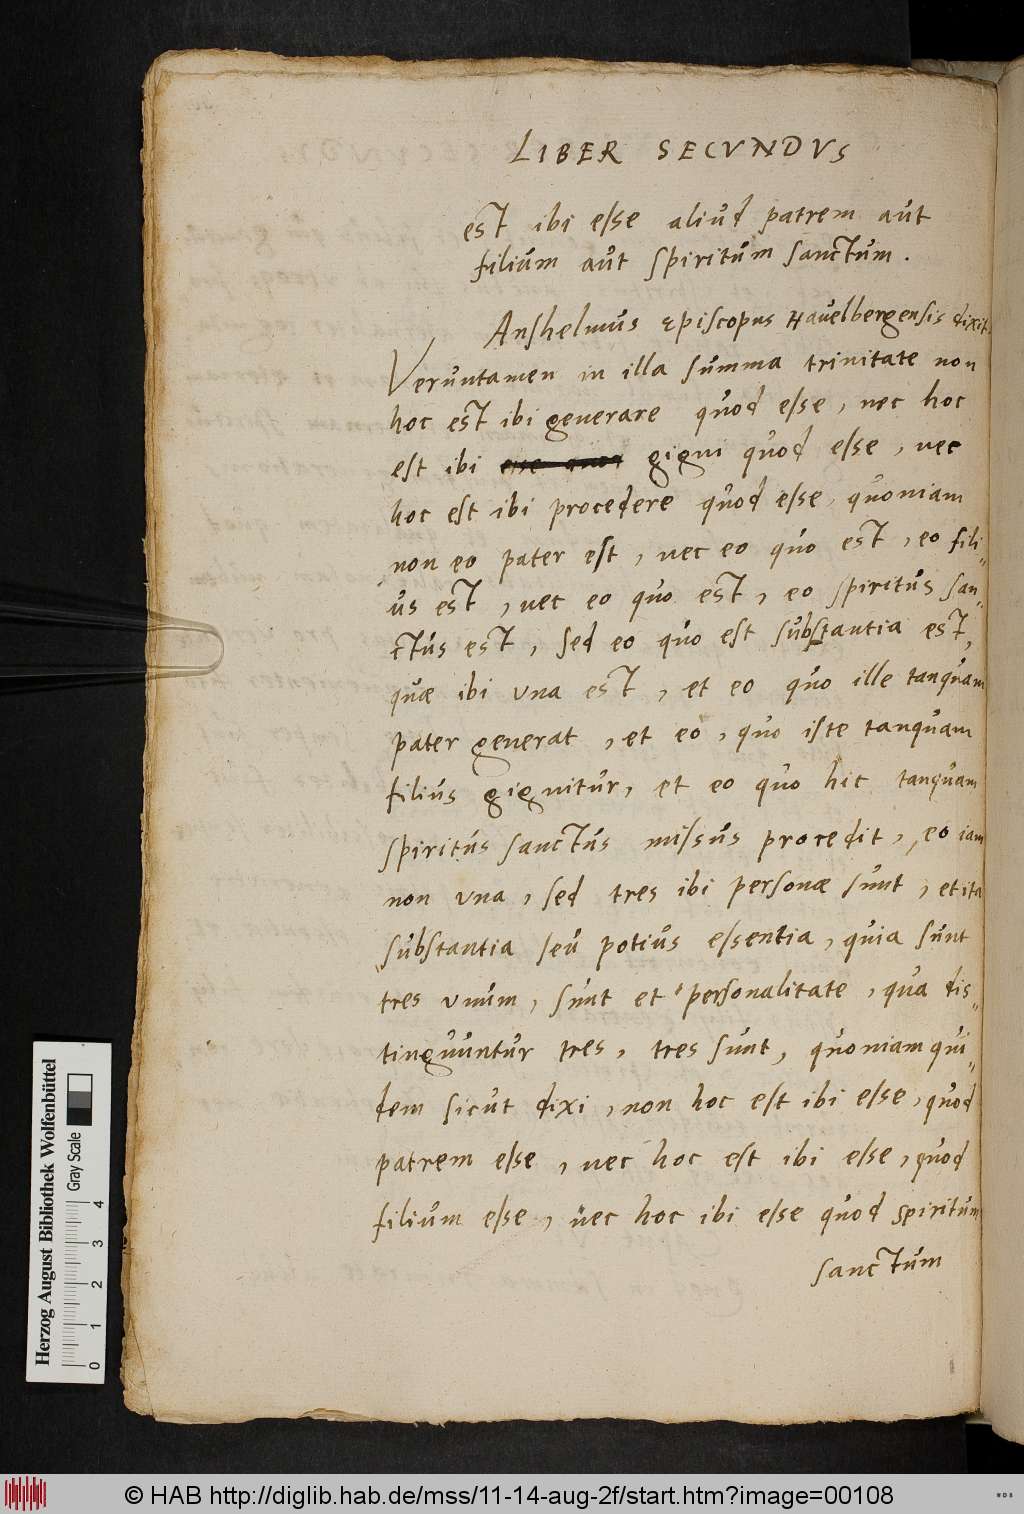 LIBER SECVNDVS
est ibi esse aliud patrem aut
filium aut spiritum sanctum.
Anshelmus Episcopus Havelbergensis dixit
Veruntamen in illa summa trinitate non
hoc est ibi generare quod esse, nec hoc
est ibi esse quod gigni quod esse, nec
hoc est ibi procedere quod esse, quoniam
non eo pater est, nec eo quo est, eo fili=
us est, nec eo quo est, eo spiritus san=
ctus est, sed eo quo est substantia est,
quæ ibi una est, et eo quo ille tanquam
pater generat, et eo, quo iste tanquam
filius gignitur, et eo quo hic tanquam
spiritus sanctus missus procedit, eo iam
non una, sed tres ibi personæ sunt, et ita
substantia seu potius essentia, quia sunt
tres unum, sunt et personalitate, qua dis=
tinguuntur tres, tres sunt, quoniam qui=
dem sicut dixi, non hoc est ibi esse, quod
patrem esse, nec hoc est ibi esse, quod
filium esse, nec hoc ibi esse quod spiritum
sanctum
Herzog August Bibliothek Wolfenbüttel
Gray Scale
0 1 2 3 4
© HAB http://diglib.hab.de/mss/11-14-aug-2f/start.htm?image=00108